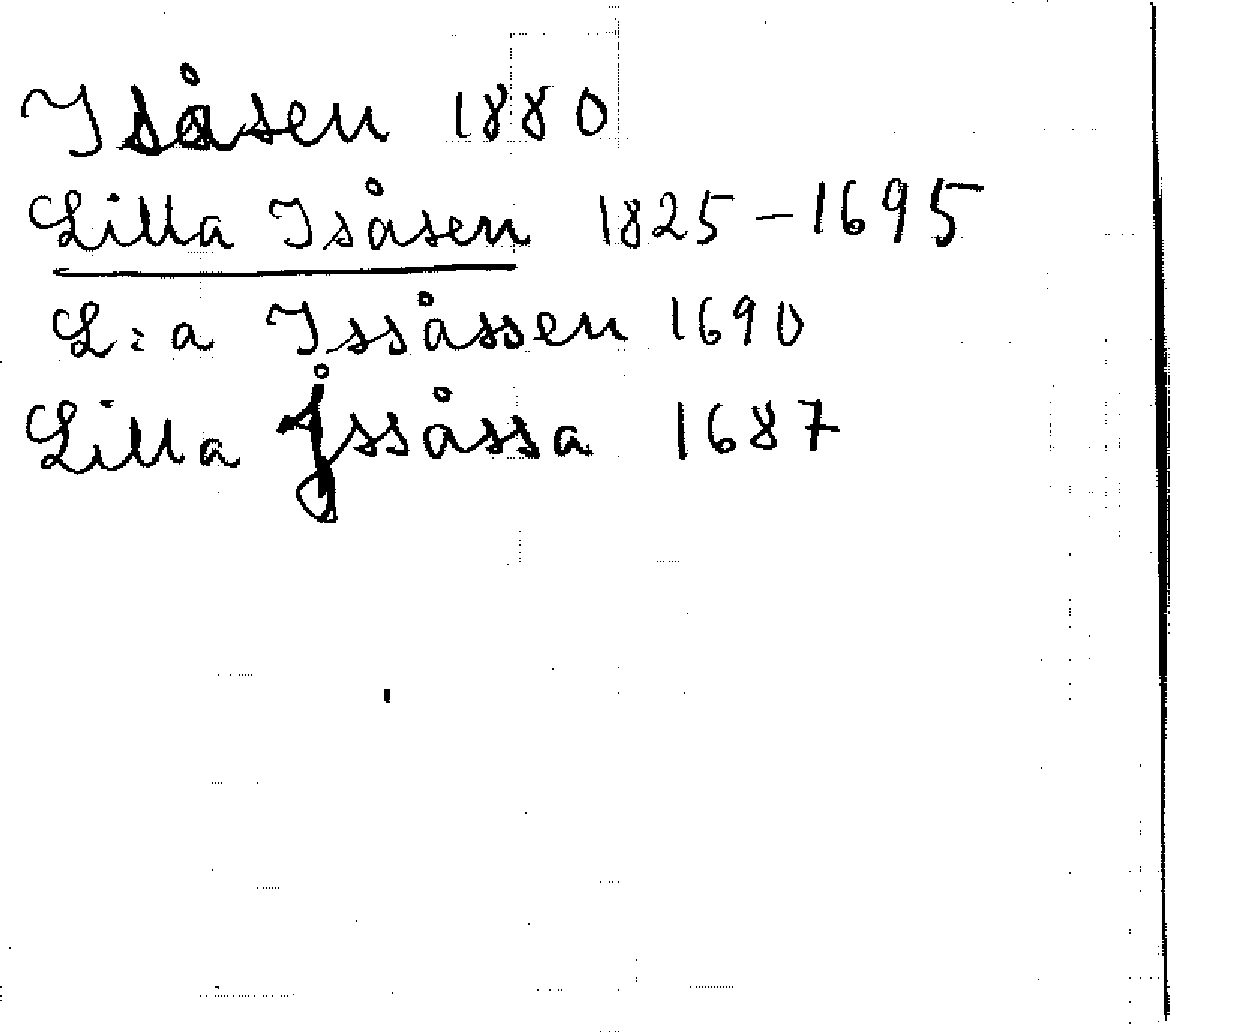 Isåsen 1880
Lilla Isåsen 1825-1695
L:a Issåssen 1690
Lilla Jssåssa 1687